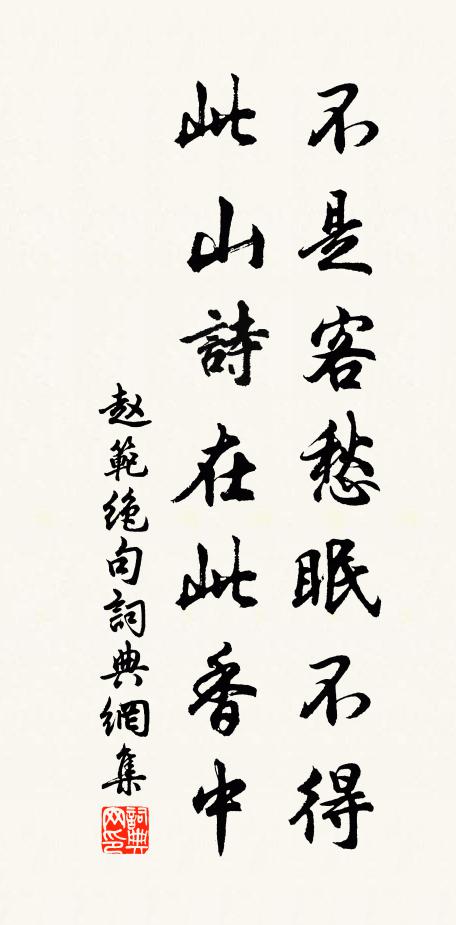 不是客愁眠不得
此山詩在此香中
赵範绝句詞典網集
詞典網印